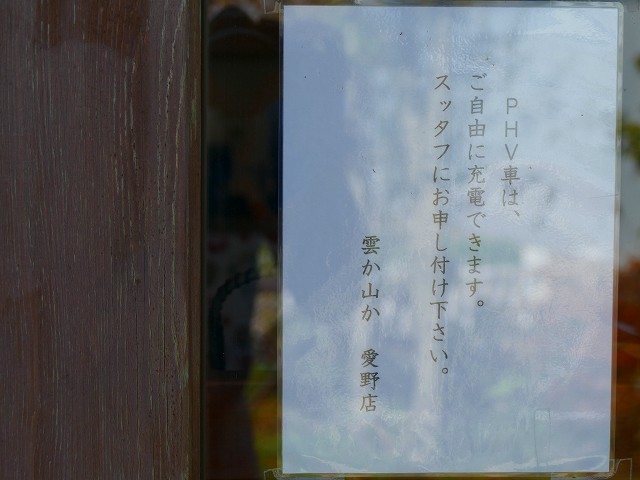 PHV車は、
ご自由に充電できます。
スッタフにお申し付け下さい。
雲か山か　愛野店